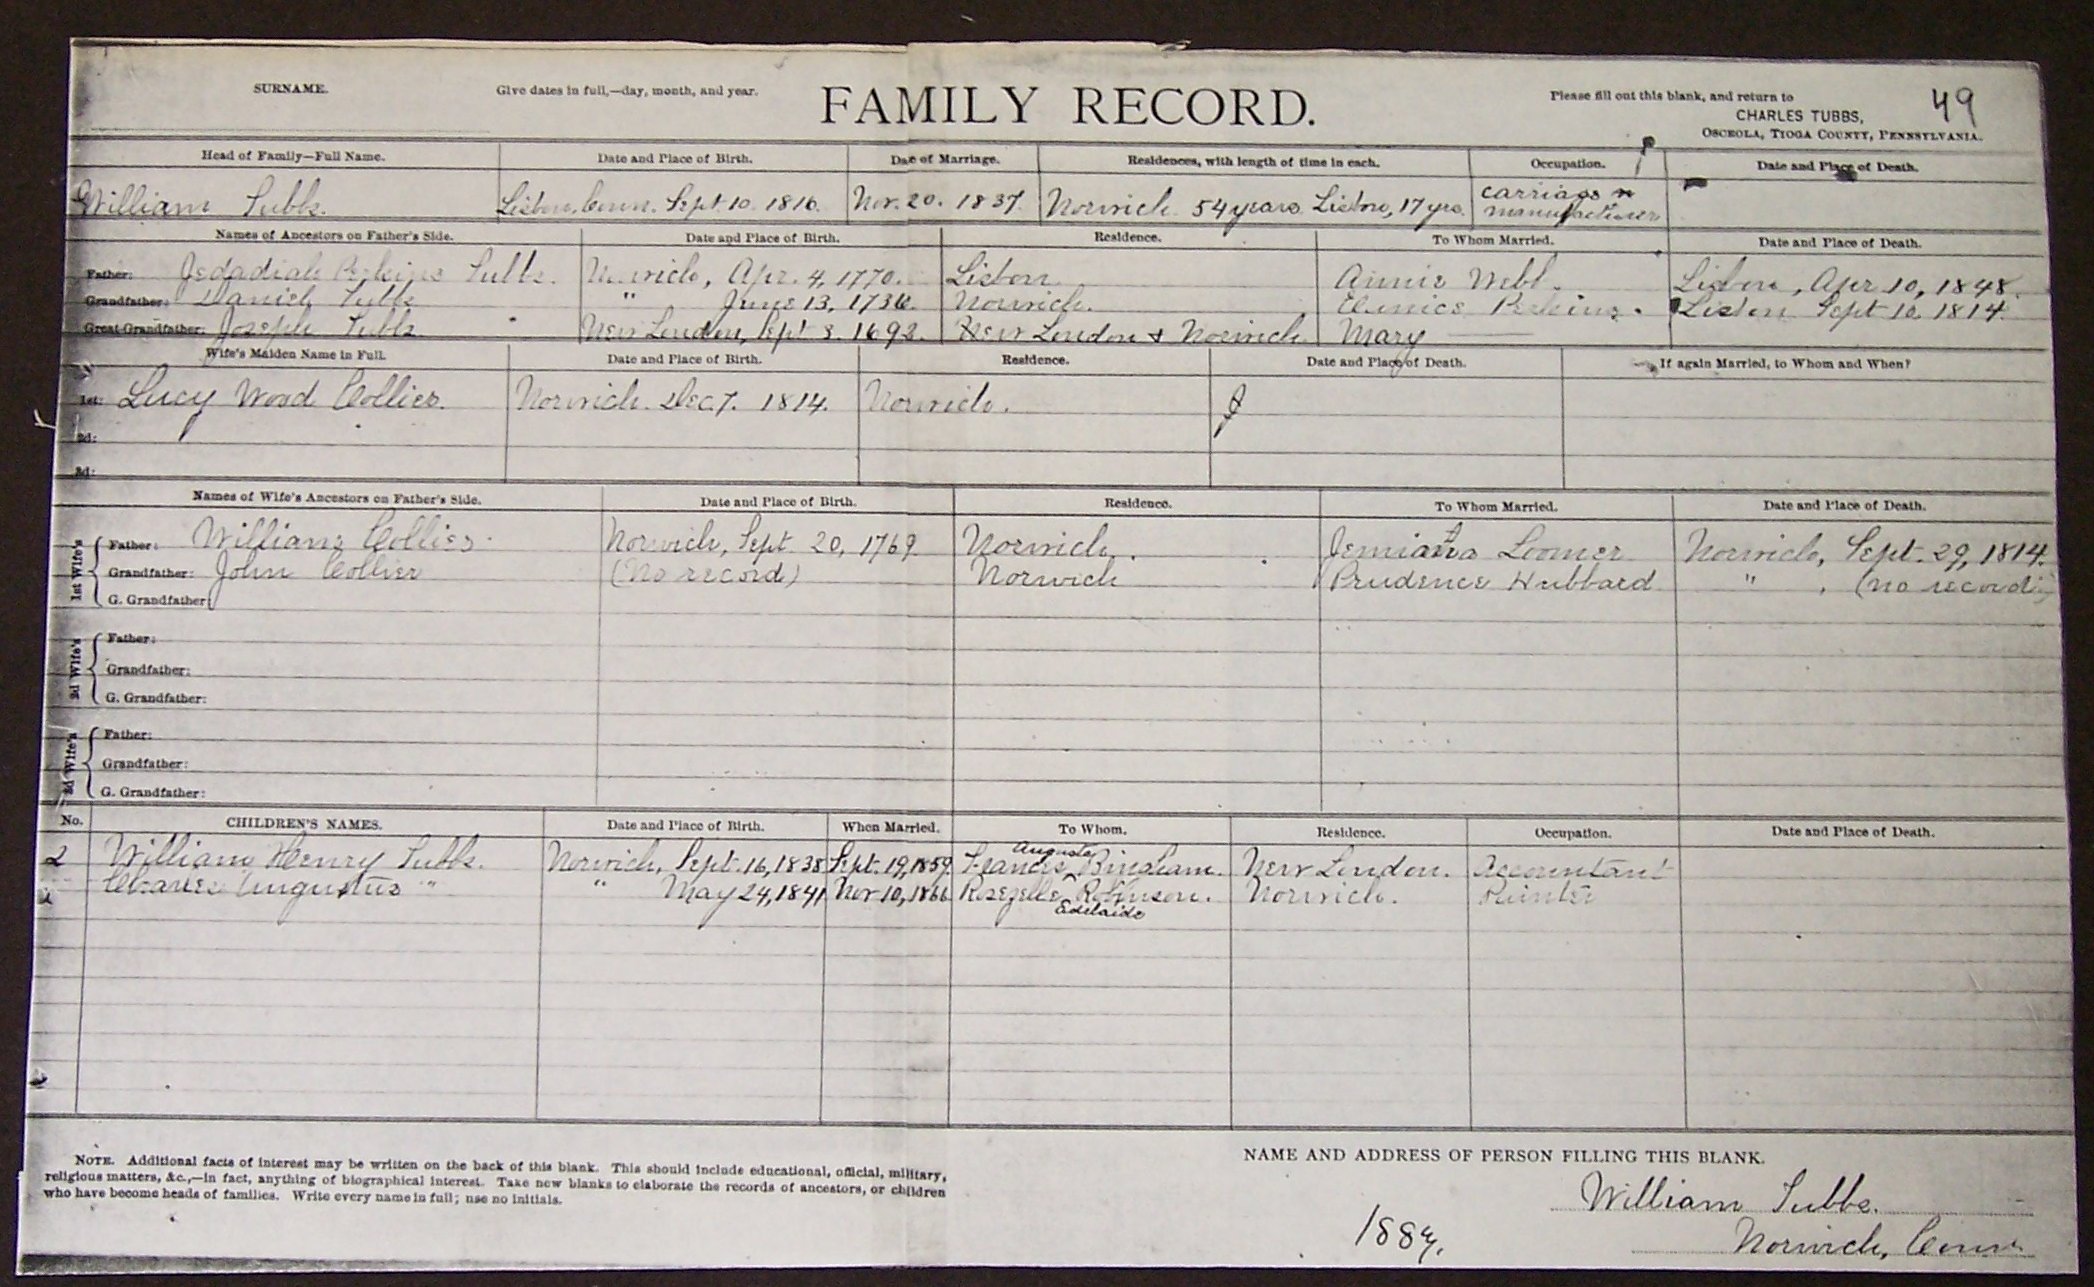 SURNAME.
Give dates in full,—day, month, and year.
FAMILY RECORD.
Please fill out this blank, and return to
49
CHARLES TUBBS,
OSCEOLA, TIOGA COUNTY, PENNSYLVANIA.
Head of Family—Full Name. Date and Place of Birth. Date of Marriage. Residences, with length of time in each. Occupation. Date and Place of Death.
William Tubbs. Lisbon, Conn. Sept. 10. 1816. Nov. 20. 1837. Norwich 54 years Lisbon, 17 yrs. carriage manufacturer
Names of Ancestors on Father's Side. Date and Place of Birth. Residence. To Whom Married. Date and Place of Death.
Father: Jedadiah Perkins Tubbs. Norwich, Apr. 4, 1770. Lisbon Annie Webb. Lisbon, Apr 10, 1848.
Grandfather: Daniel Tubbs " June 13, 1736. Norwich. Eunice Perkins. Lisbon Sept 10 1814.
Great Grandfather: Joseph Tubbs New London, Sept 3. 1692. New London & Norwich. Mary
Wife's Maiden Name in Full. Date and Place of Birth. Residence. Date and Place of Death. If again Married, to Whom and When?
1st: Lucy Wood Collier. Norwich. Dec. 7. 1814. Norwich.
2d:
3d:
Names of Wife's Ancestors on Father's Side. Date and Place of Birth. Residence. To Whom Married. Date and Place of Death.
1st Wife's
Father: William Collier. Norwich, Sept. 20, 1769. Norwich. Loomer Norwich, Sept. 29, 1814.
Grandfather: John Collier (No record) Norwich Prudence Hubbard " , (no record)
G. Grandfather:
2d Wife's
Father:
Grandfather:
G. Grandfather:
3d Wife's
Father:
Grandfather:
G. Grandfather:
No. CHILDREN'S NAMES. Date and Place of Birth. When Married. To Whom. Residence. Occupation. Date and Place of Death.
Augusta
2 William Henry Tubbs. Norwich, Sept. 16, 1838 Sept. 19, 1859. Frances Bingham. New London. Accountant
Charles Augustus " " May 24, 1841 Nov 10, 1866 Rozzelle Robinson. Norwich. Printer
Adelaide
NOTE. Additional facts of interest may be written on the back of this blank. This should include educational, official, military,
religious matters, &c.,—in fact, anything of biographical interest. Take new blanks to elaborate the records of ancestors, or children
who have become heads of families. Write every name in full; use no initials.
NAME AND ADDRESS OF PERSON FILLING THIS BLANK.
William Tubbs.
1887.
Norwich, Conn